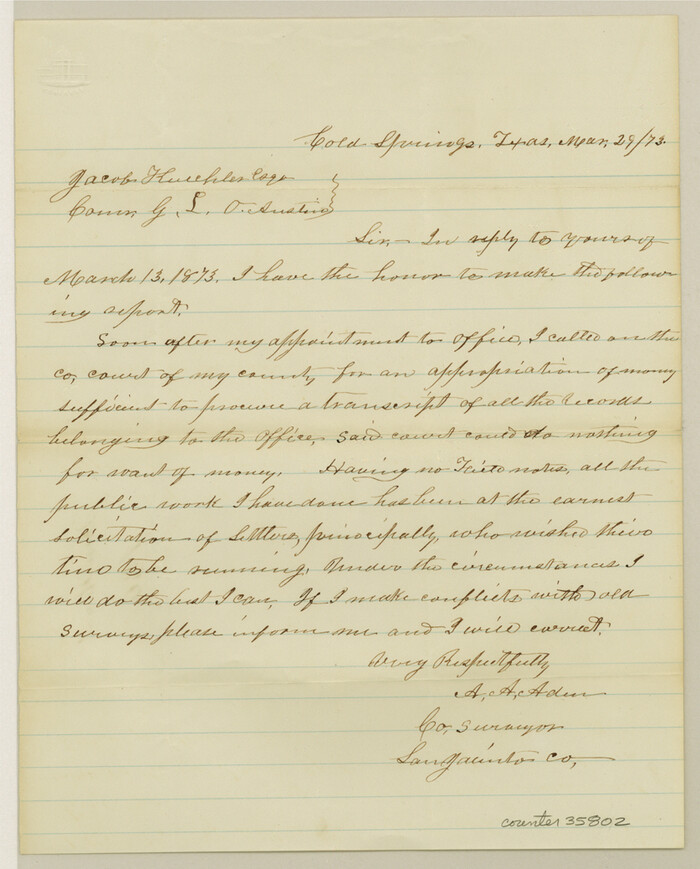 Cold Springs, Texas, Mar, 29/73.
Jacob Kuechler Esqr
Comr, G. L. O. Austin
Sir,— In reply to yours of
March 13, 1873, I have the honor to make the follow-
ing report.
Soon after my appointment to office, I called on the
co, court of my county for an appropriation of money
sufficient to procure a transcript of all the records
belonging to the office, said court could do nothing
for want of money. Having no Field notes, all the
public work I have done has been at the earnest
solicitation of settlers, principally, who wished their
time to be running. Under the circumstances I
will do the best I can. If I make conflicts with old
surveys, please inform me and I will correct.
Very Respectfully
A, A, Aden
Co, Surveyor
San Jacinto Co,
counter 35802